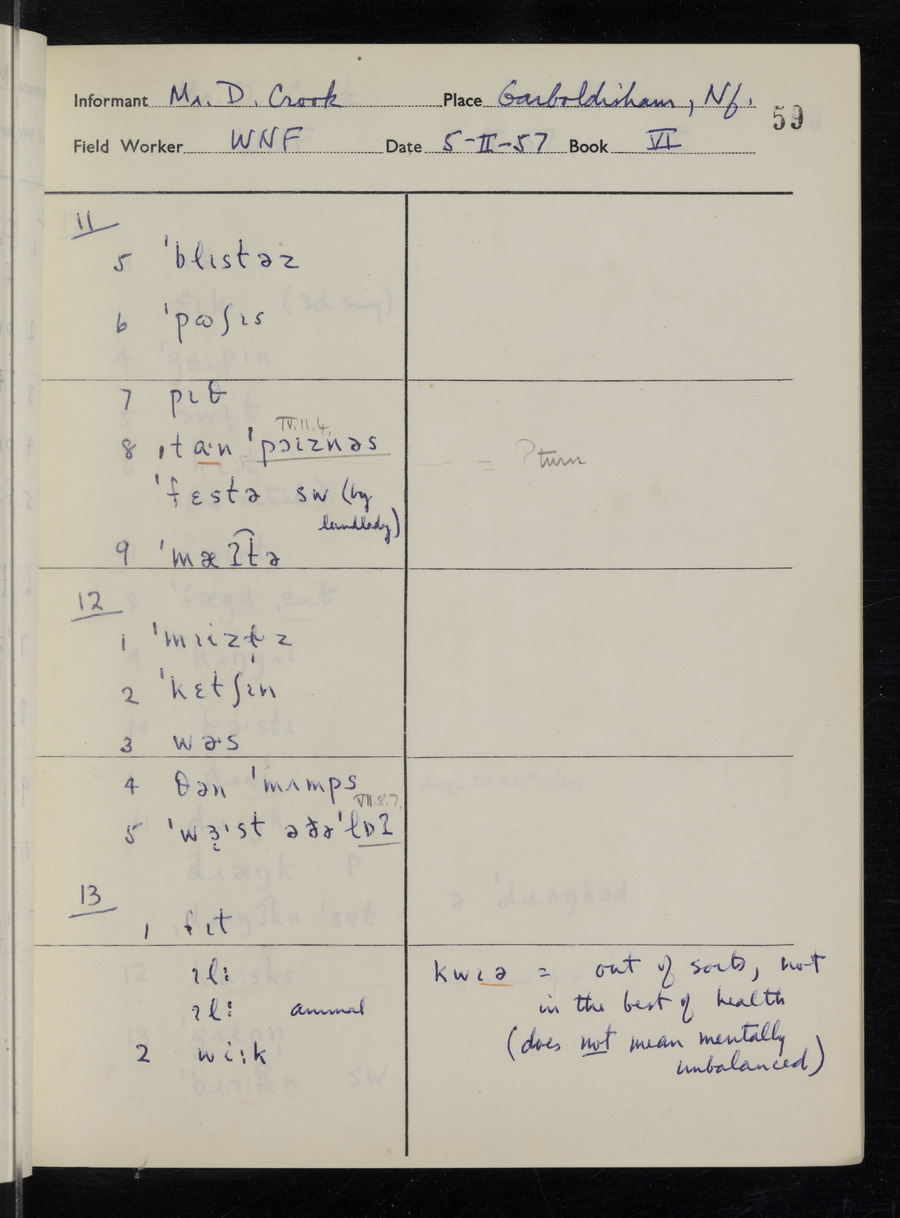 Informant Mr. D. Crook Place Garboldisham, Nf.
59
Field Worker WNF Date 5-II-57 Book VI
11
5 ˈblɩstəz
6 ˈpɷʃɩs
7 pɩt
IV.11.4.
8 ˌtaˑn ˈpɔɩznəs = ?turn
ˈfɛstə sw (by
landlady)
9 ˈmæʔ͡tə
12
1 ˈmɩizɫz
2 ˈkɛtʃɩn
3 wəˑs
4 ðən ˈmʌmps
VII.8.7.
5 ˈwɜˑst əðəˈlɒʔ
13
1 fɩt
ɩlː kwɩə = out of sorts, not
ɩlː animal in the best of health
2 wiːk (does not mean mentally
unbalanced)